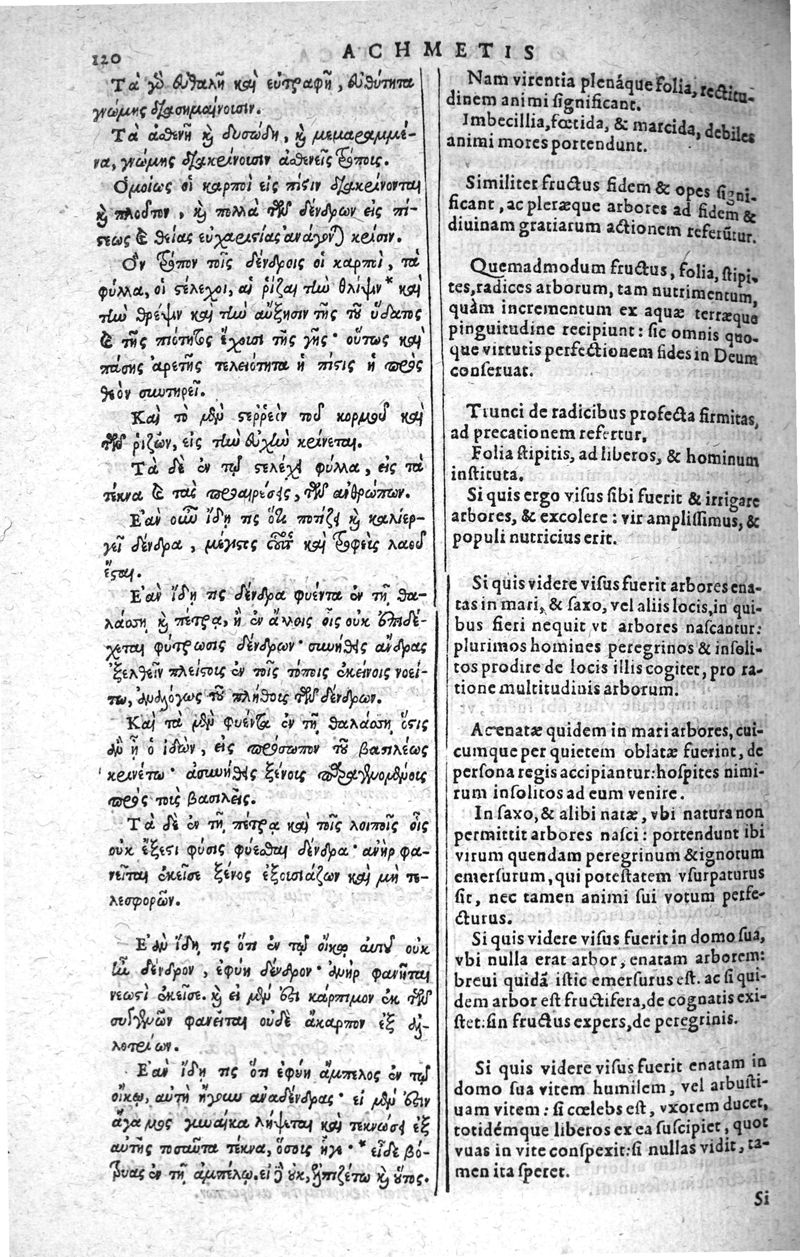 120
ACHMETIS
Τὰ γὸ εὐθαλῆ καὶ εὐτραφῆ, εὐθύτητα
γνώμης διασημαίνουσιν.
Τὰ ἀσθενῆ καὶ δυσώδη, καὶ μεμαραμμέ-
να, γνώμης διακρίνουσιν ἀσθενεῖς τρόποις.
Ὁμοίως οἱ καρποὶ εἰς πίστιν διακρίνονται
καὶ πλοῦτον, καὶ πολλὰ τῶν δένδρων εἰς πί-
στεως καὶ θείας εὐχαριστίας ἀνάγον) κρίσιν.
Ὃν τρόπον τοῖς δένδροις οἱ καρποὶ, τὰ
φύλλα, οἱ στέλεχοι, αἱ ῥίζαι τὴν θλίψιν* καὶ
τὴν θρέψιν καὶ τὴν αὔξησιν τῆς τοῦ ὕδατος
καὶ τῆς πιότητος ἔχουσι τῆς γῆς· οὕτως καὶ
πάσης ἀρετῆς τελειότητα ἡ πίστις ἡ πρὸς
θεὸν συντηρεῖ.
Καὶ τὸ μὲν στερρεὸν τοῦ κορμοῦ καὶ
τῶν ῥιζῶν, εἰς τὴν εὐχὴν κρίνεται.
Τὰ δὲ ἐν τῷ στελέχει φύλλα, εἰς τὰ
τέκνα καὶ τὰς προαιρέσεις, τῶν ἀνθρώπων.
Ἐὰν οὖν ἴδῃ τις ὅτι ποτίζει καὶ καλιερ-
γεῖ δένδρα, μέγιστος καὶ τροφεὺς λαοῦ
ἔσται.
Ἐὰν ἴδῃ τις δένδρα φυέντα ἐν τῇ θα-
λάσσῃ καὶ πέτρᾳ, ἢ ἐν ἄλλοις οἷς οὐκ ἐπιδέ-
χεται φύτρωσις δένδρων· συνήθεις ἄνδρας
ἐξελθεῖν πλείστους ἐν τοῖς τόποις ἐκείνοις νοεί-
τω, ἀναλόγως τοῦ πλήθους τῶν δένδρων.
Καὶ τὰ μὲν φυέντα ἐν τῇ θαλάσσῃ ὅστις
ἂν ᾖ ὁ ἰδών, εἰς πρόσωπον τοῦ βασιλέως
κρινέτω· ἀσυνήθεις ξένοις παραγινομένοις
πρὸς τοῖς βασιλεῖς.
Τὰ δὲ ἐν τῇ πέτρᾳ καὶ τοῖς λοιποῖς οἷς
οὐκ ἔξεστι φύσις φύεσθαι δένδρα· ἀνὴρ φα-
νεῖται ἐκεῖσε ξένος ἐξουσιάζων καὶ μὴ τε-
λεσφορῶν.
Ἐὰν ἴδῃ τις ὅτι ἐν τῷ οἴκῳ αὐτοῦ οὐκ
ἦν δένδρον, ἐφύη δένδρον· ἀνὴρ φανήσεται
νεωστὶ ἐκεῖσε. καὶ εἰ μὲν ἔστι κάρπιμον ἐκ τῶν
συγγενῶν φανεῖται οὐδὲ ἄκαρπον ἐξ ἀλ-
λοτρίων.
Ἐὰν ἴδῃ τις ὅτι ἐφύη ἄμπελος ἐν τῷ
οἴκῳ, αὐτὴ ἤγουν ἀναδένδρας· εἰ μὲν ἔστιν
ἄγαμος γυναῖκα λήψεται καὶ τεκνώσει ἐξ
αὐτῆς τοσαῦτα τέκνα, ὅσοις ἦγε·* εἶδε βό-
τρυας ἐν τῇ ἀμπέλῳ. εἰ δὲ οὐκ, ἐλπιζέτω καὶ οὕτως.
Nam virentia plenáque folia, rectitu-
dinem animi significant.
Imbecillia, fœtida, & marcida, debiles
animi mores portendunt.
Similiter fructus fidem & opes signi-
ficant, ac pleræque arbores ad fidem &
diuinam gratiarum actionem referūtur.
Quemadmodum fructus, folia, stipi-
tes, radices arborum, tam nutrimentum,
quàm incrementum ex aquæ terræque
pinguitudine recipiunt: sic omnis quo-
que virtutis perfectionem fides in Deum
conseruat.
Trunci de radicibus profecta firmitas,
ad precationem refertur.
Folia stipitis, ad liberos, & hominum
instituta.
Si quis ergo visus sibi fuerit & irrigare
arbores, & excolere: vir amplissimus, &
populi nutricius erit.
Si quis videre visus fuerit arbores ena-
tas in mari, & saxo, vel aliis locis, in qui-
bus fieri nequit vt arbores nascantur:
plurimos homines peregrinos & insoli-
tos prodire de locis illis cogitet, pro ra-
tione multitudinis arborum.
Ac enatæ quidem in mari arbores, cui-
cumque per quietem oblatæ fuerint, de
persona regis accipiantur: hospites nimi-
rum insolitos ad eum venire.
In saxo, & alibi natæ, vbi natura non
permittit arbores nasci: portendunt ibi
virum quendam peregrinum & ignotum
emersurum, qui potestatem vsurpaturus
sit, nec tamen animi sui votum perfe-
cturus.
Si quis videre visus fuerit in domo sua,
vbi nulla erat arbor, enatam arborem:
breui quidā istic emersurus est. ac si qui-
dem arbor est fructifera, de cognatis exi-
stet: sin fructus expers, de peregrinis.
Si quis videre visus fuerit enatam in
domo sua vitem humilem, vel arbusti-
uam vitem: si cœlebs est, vxorem ducet,
totidémque liberos ex ea suscipiet, quot
vuas in vite conspexit: si nullas vidit, ta-
men ita speret.
Si